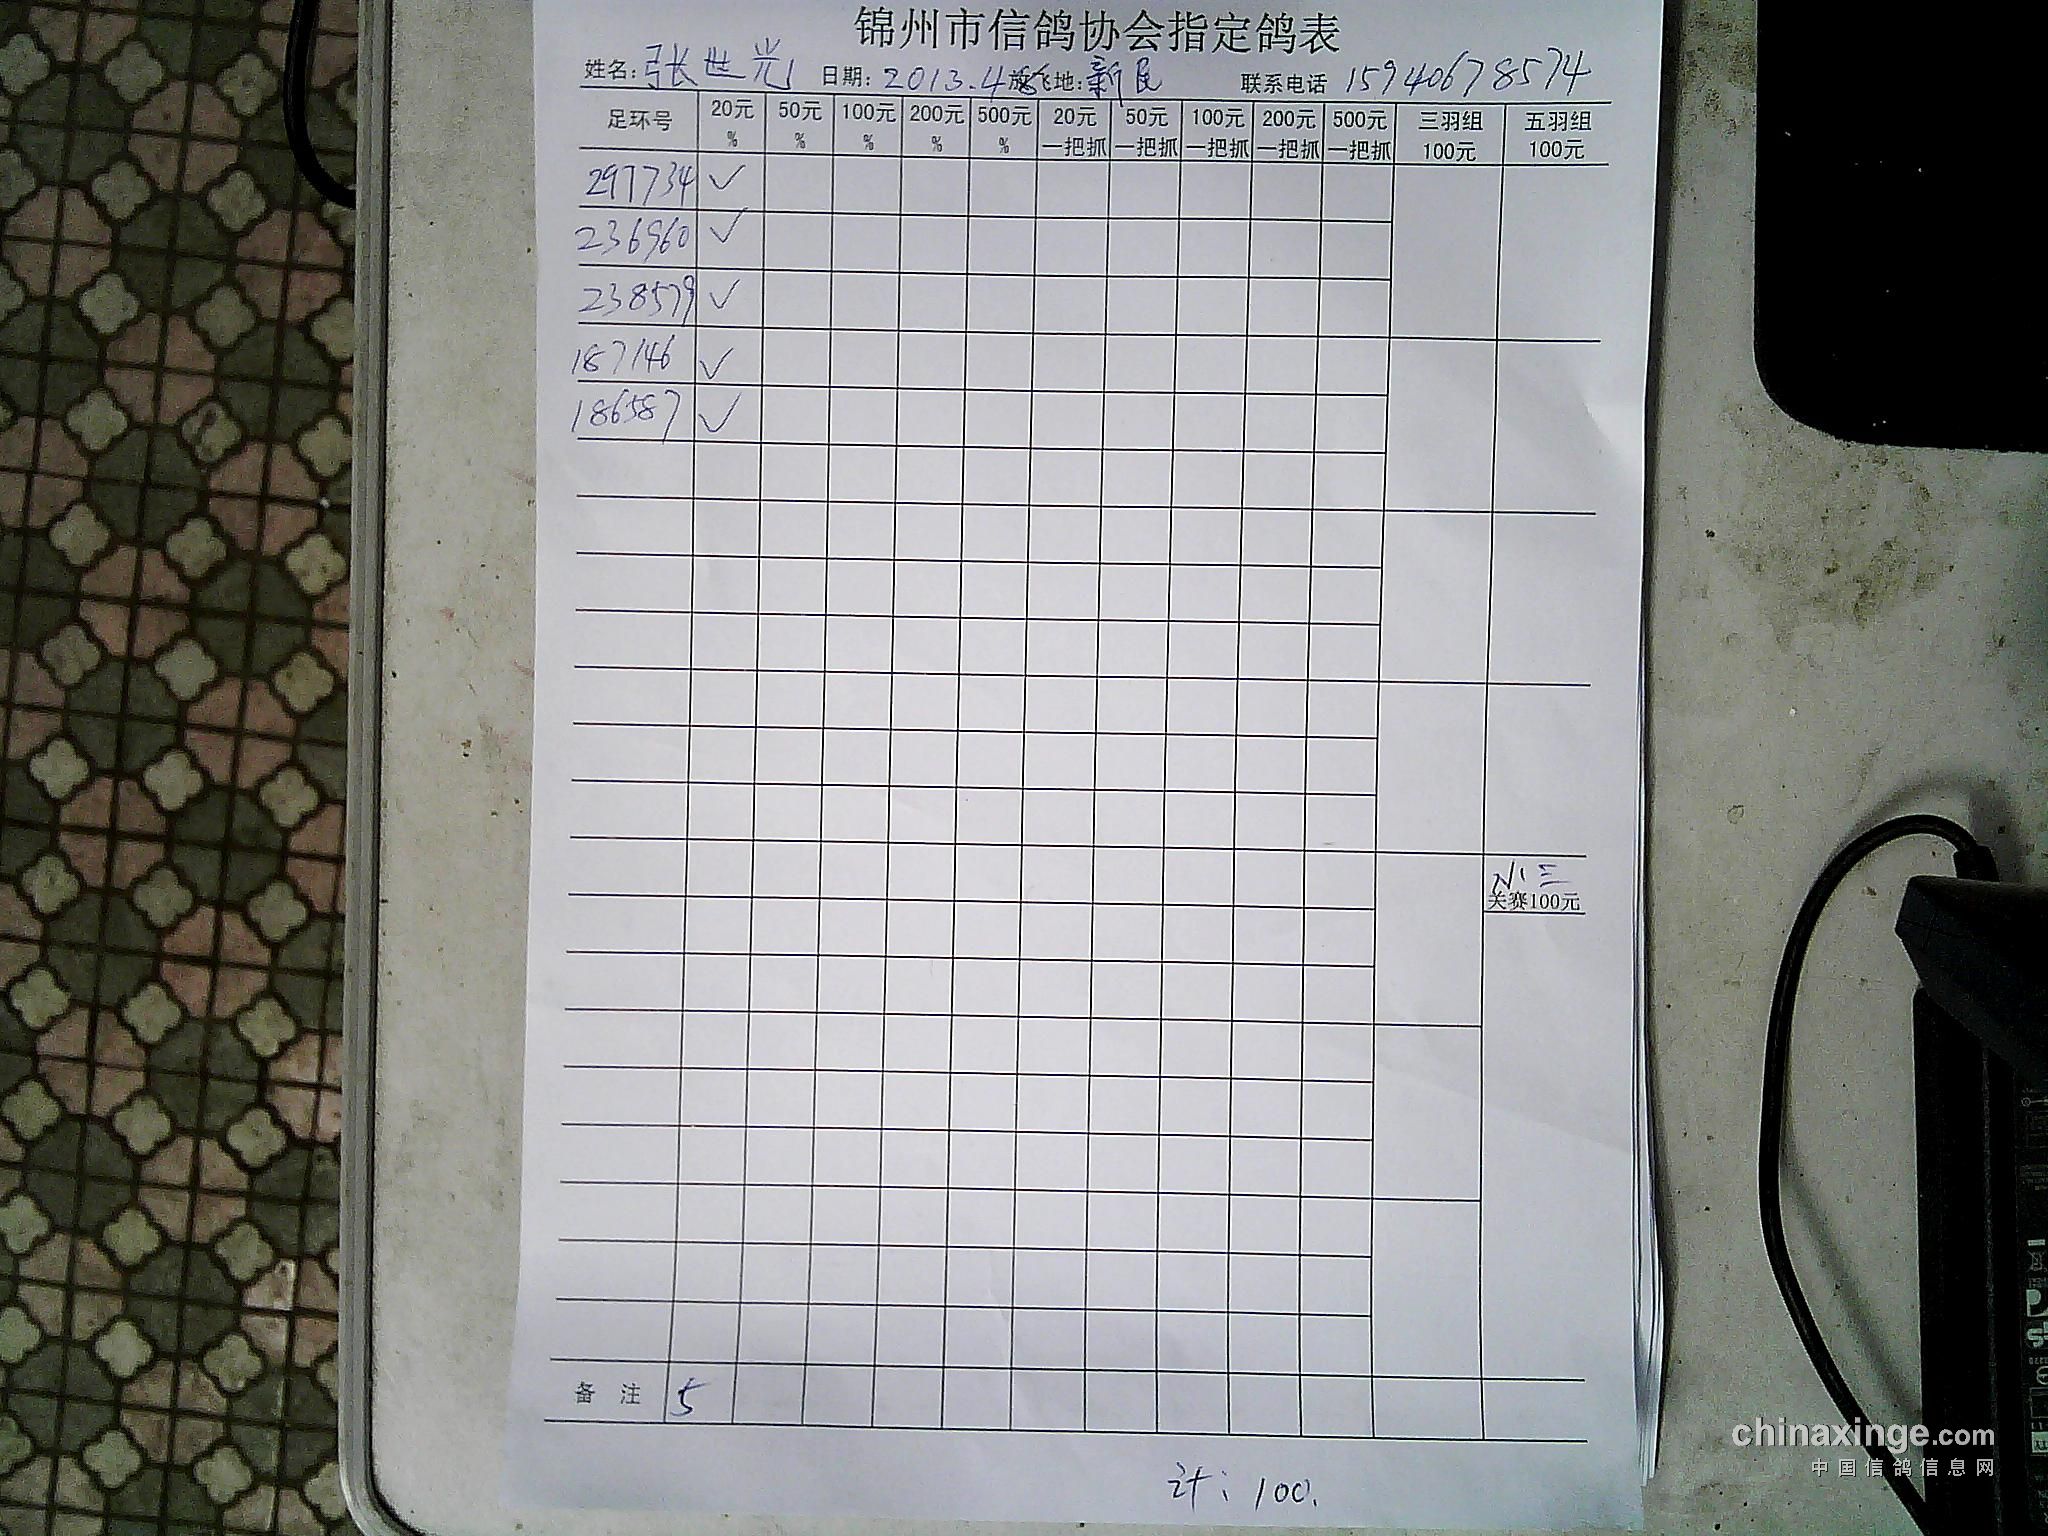 锦州市信鸽协会指定鸽表
姓名:张世光 日期:2013.4.8 放飞地:新民 联系电话 15940678574
足环号 20元 % 50元 % 100元 % 200元 % 500元 % 20元 一把抓 50元 一把抓 100元 一把抓 200元 一把抓 500元 一把抓 三羽组 100元 五羽组 100元
297734 ✓
236960 ✓
238579 ✓
187146 ✓
186587 ✓
三
关赛100元
备 注 5
计:100.
chinaxinge.com
中国信鸽信息网